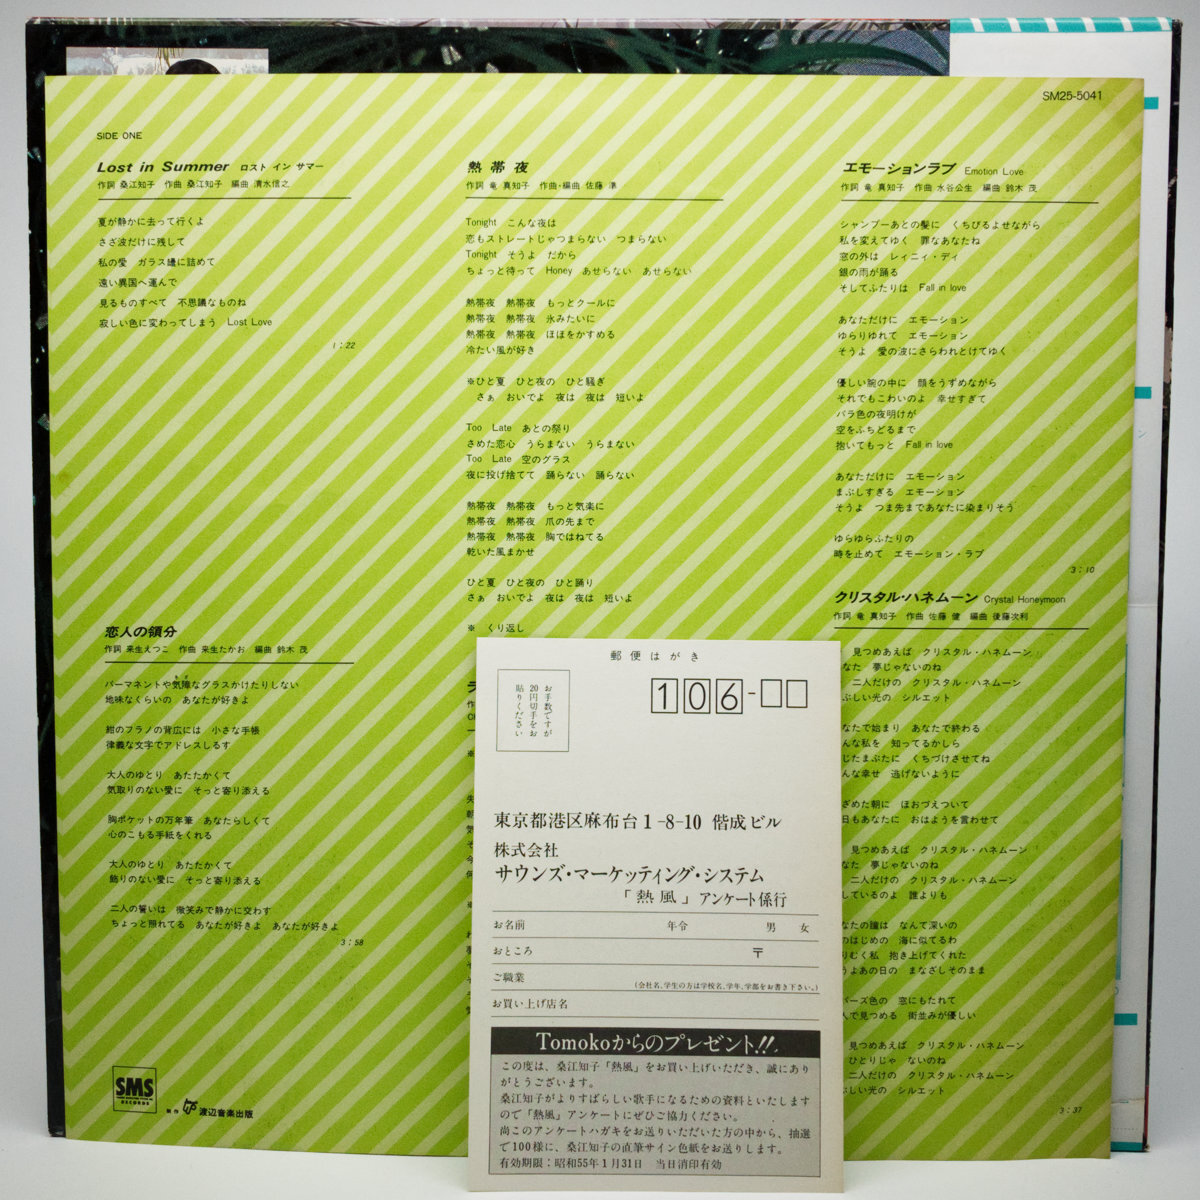 SM25-5041
SIDE ONE
Lost in Summer ロスト イン サマー
作詞 桑江知子 作曲 桑江知子 編曲 清水信之
夏が静かに去って行くよ
さざ波だけに残して
私の愛 ガラス罎に詰めて
遠い異国へ運んで
見るものすべて 不思議なものね
寂しい色に変わってしまう Lost Love
1:22
恋人の領分
作詞 来生えつこ 作曲 来生たかお 編曲 鈴木 茂
パーマネントや気障なグラスかけたりしない
地味なくらいの あなたが好きよ
紺のフラノの背広には 小さな手帳
律義な文字でアドレスしるす
大人のゆとり あたたかくて
気取りのない愛に そっと寄り添える
胸ポケットの万年筆 あたらしくて
心のこもる手紙をくれる
大人のゆとり あたたかくて
飾りのない愛に そっと寄り添える
二人の誓いは 微笑みで静かに交わす
ちょっと照れてる あなたが好きよ あなたが好きよ
3:58
SMS
RECORDS
制作 渡辺音楽出版
熱帯夜
作詞 竜 真知子 作曲・編曲 佐藤 準
Tonight こんな夜は
恋もストレートじゃつまらない つまらない
Tonight そうよ だから
ちょっと待って Honey あせらない あせらない
熱帯夜 熱帯夜 もっとクールに
熱帯夜 熱帯夜 氷みたいに
熱帯夜 熱帯夜 ほほをかすめる
冷たい風が好き
※ひと夏 ひと夜の ひと騒ぎ
さぁ おいでよ 夜は 夜は 短いよ
Too Late あとの祭り
さめた恋心 うらまない うらまない
Too Late 空のグラス
夜に投げ捨てて 踊らない 踊らない
熱帯夜 熱帯夜 もっと気楽に
熱帯夜 熱帯夜 爪の先まで
熱帯夜 熱帯夜 胸ではねてる
乾いた風まかせ
ひと夏 ひと夜の ひと踊り
さぁ おいでよ 夜は 夜は 短いよ
※ くり返し
エモーションラブ Emotion Love
作詞 竜 真知子 作曲 水谷公生 編曲 鈴木 茂
シャンプーあとの髪に くちびるよせながら
私を変えてゆく 罪なあなたね
窓の外は レィニィ・ディ
銀の雨が踊る
そしてふたりは Fall in love
あなただけに エモーション
ゆらりゆれて エモーション
そうよ 愛の波にさらわれとけてゆく
優しい腕の中に 顔をうずめながら
それでもこわいのよ 幸せすぎて
バラ色の夜明けが
空をふちどるまで
抱いてもっと Fall in love
あなただけに エモーション
まぶしすぎる エモーション
そうよ つま先まであなたに染まりそう
ゆらゆらふたりの
時を止めて エモーション・ラブ
3:10
クリスタル・ハネムーン Crystal Honeymoon
作詞 竜 真知子 作曲 佐藤 健 編曲 後藤次利
見つめあえば クリスタル・ハネムーン
なた 夢じゃないのね
二人だけの クリスタル・ハネムーン
ぶしい光の シルエット
なたで始まり あなたで終わる
んな私を 知ってるかしら
じたまぶたに くちづけさせてね
んな幸せ 逃げないように
ざめた朝に ほおづえついて
日もあなたに おはようを言わせて
見つめあえば クリスタル・ハネムーン
なた 夢じゃないのね
二人だけの クリスタル・ハネムーン
しているのよ 誰よりも
なたの瞳は なんて深いの
のはじめの 海に似てるわ
りむく私 抱き上げてくれた
うよあの日の まなざしそのまま
バーズ色の 窓にもたれて
人で見つめる 街並みが優しい
見つめあえば クリスタル・ハネムーン
ひとりじゃ ないのね
二人だけの クリスタル・ハネムーン
ぶしい光の シルエット
3:37
郵便はがき
お手数ですが
20円切手をお
貼りください
106-
東京都港区麻布台1-8-10 偕成ビル
株式会社
サウンズ・マーケッティング・システム
「熱風」アンケート係行
お名前 年令 男 女
おところ 〒
ご職業 (会社名、学生の方は学校名、学年、学部をお書き下さい。)
お買い上げ店名
Tomokoからのプレゼント!!
この度は、桑江知子「熱風」をお買い上げいただき、誠にあり
がとうございます。
桑江知子がよりすばらしい歌手になるための資料といたします
ので「熱風」アンケートにぜひご協力ください。
尚このアンケートハガキをお送りいただいた方の中から、抽選
で100様に、桑江知子の直筆サイン色紙をお送りします。
有効期限:昭和55年1月31日 当日消印有効